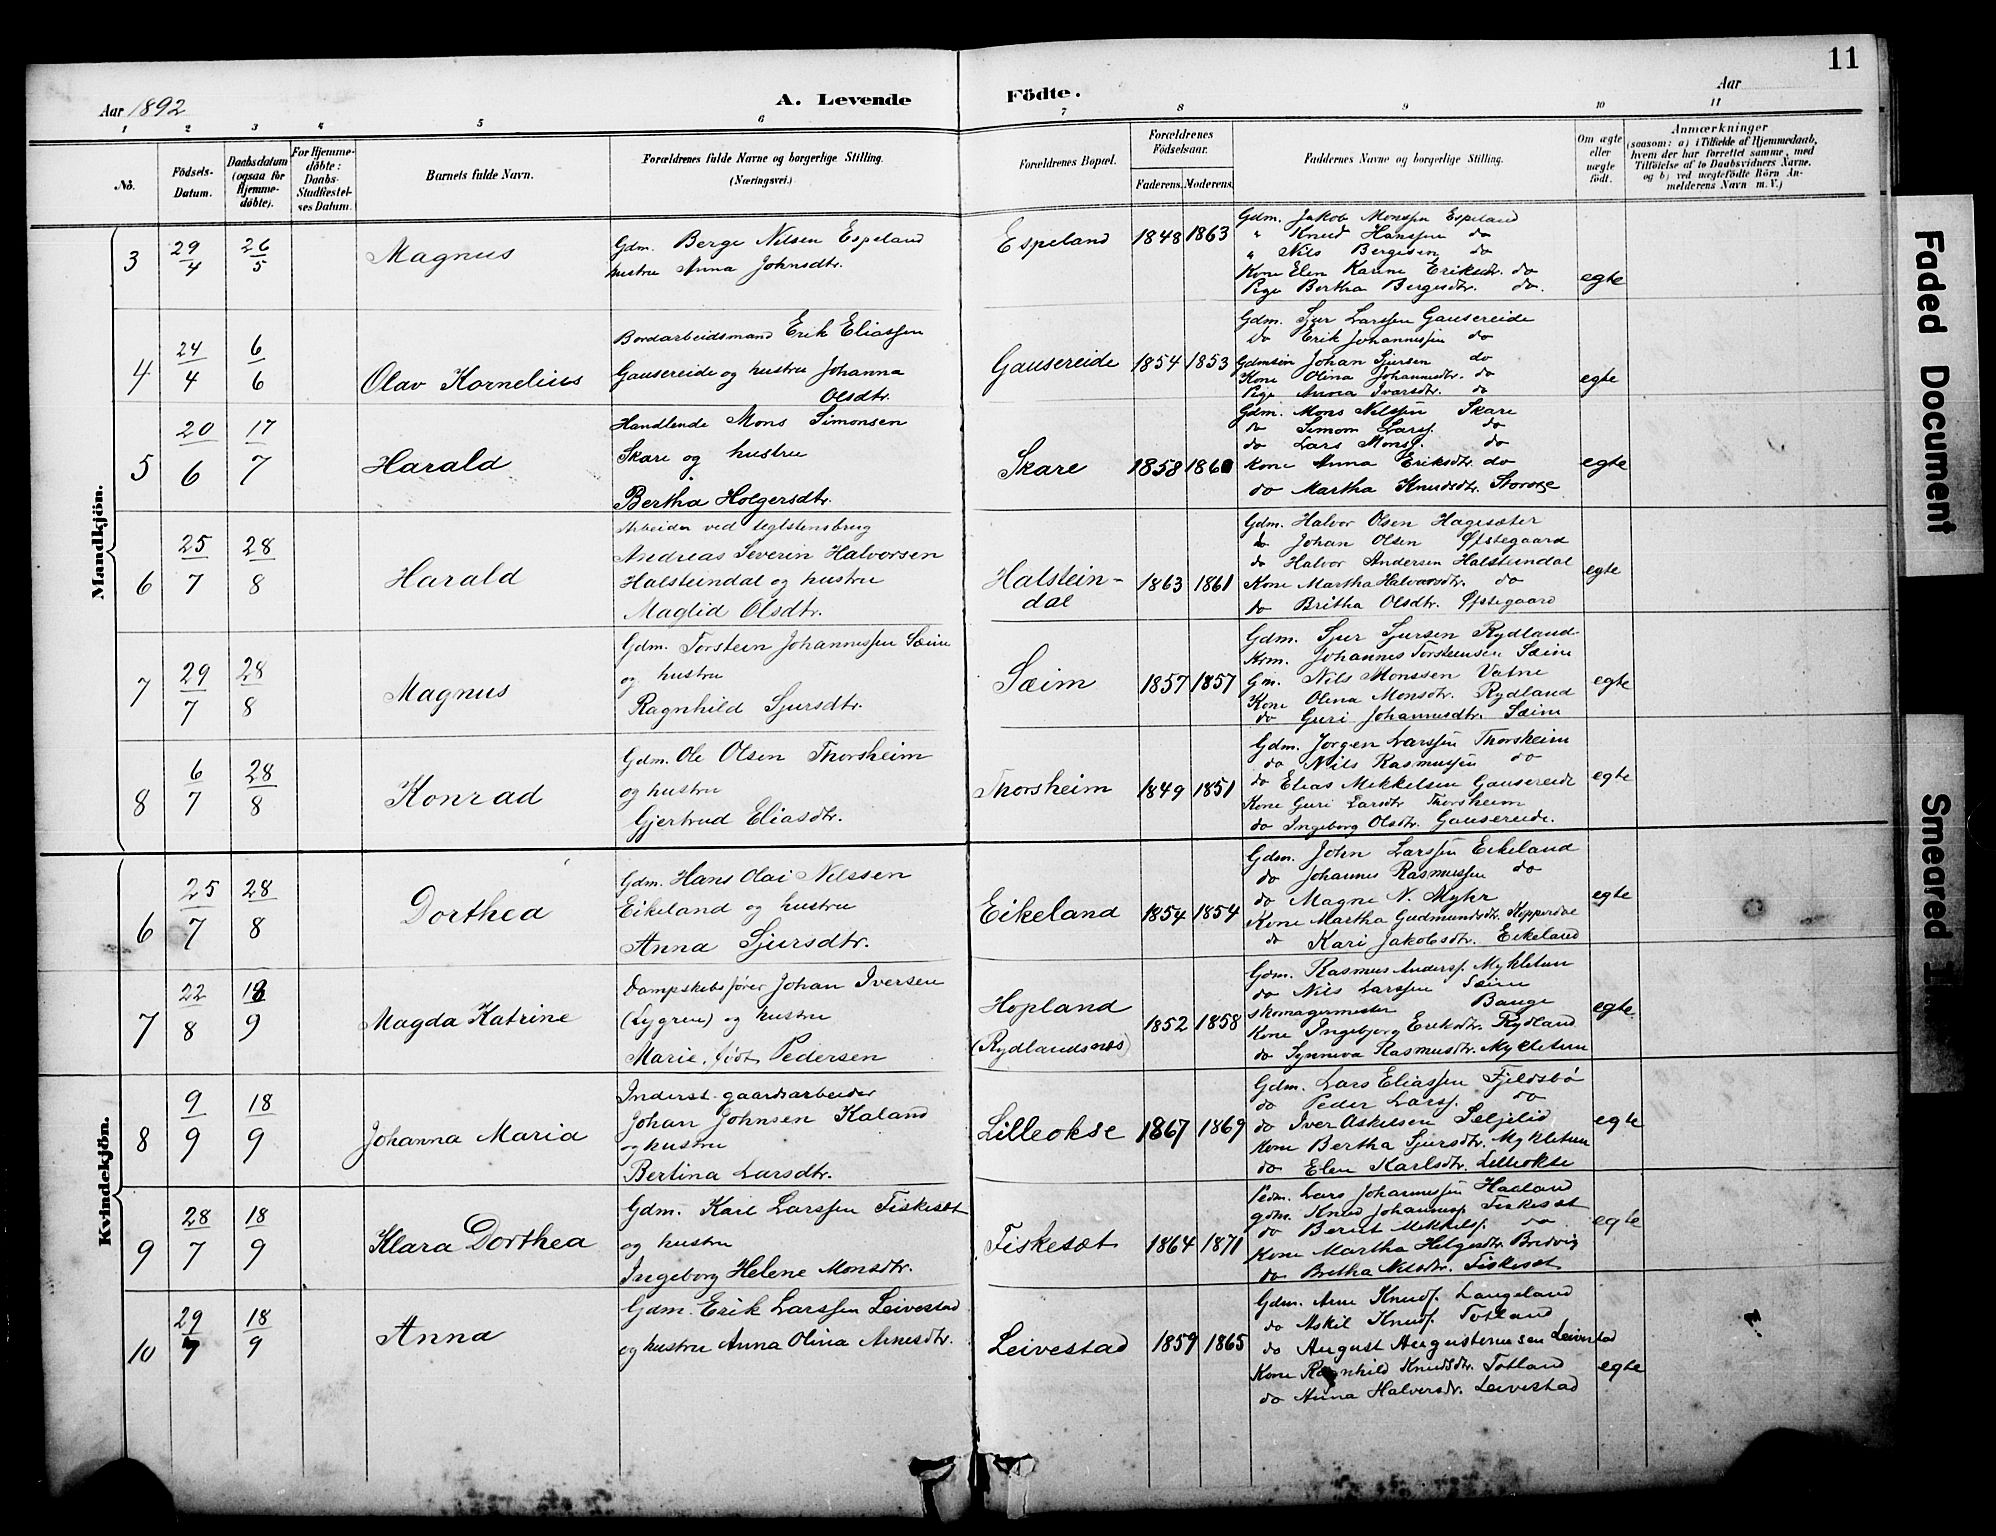 11
Aar 1892
A. Levende Födte.
Aar
1 2 3 4 5 6 7 8 9 10 11
No.
Födsels-Datum.
Daabsdatum (ogsaa for Hjemme-döbte).
For Hjemme-döbte: Daabs-Stadfæstel-ses Datum.
Barnets fulde Navn.
Forældrenes fulde Navne og borgerlige Stilling. (Næringsvei.)
Forældrenes Bopæl.
Forældrenes Födselsaar.
Faderens. Moderens.
Faddernes Navne og borgerlige Stilling.
Om ægte eller uægte födt.
Anmærkninger
(saasom: a) i Tilfælde af Hjemmedaab, hvem der har forrettet samme, med Tilföielse af to Daabsvidners Navne. og b) ved uægtefödte Börn An-melderens Navn m. V.)
Mandkjön.
3 29/4 26/5 Magnus
Gdm. Berge Nilsen Espeland
hustru Anna Johnsdtr.
Espeland 1848 1863
Gdm. Jakob Monssen Espeland
" Knud Hanssen do
" Nils Bergesen do
Kone Elen Karine Eriksdtr. do
Pige Bertha Bergesdtr. do.
egte
4 24/4 6/6 Olav Kornelius
Bordarbeidsmand Erik Eliassen
Gausereide og hustru Johanna
Olsdtr.
Gausereide 1854 1853
Gdm. Sjur Larssen Gausereide
do Erik Johannessen do
Gdmsön Johan Sjursen do
Kone Olina Johannesdtr. do
Pige Anna Ivarsdtr. do
egte
5 20/6 17/7 Harald
Handlende Mons Simonsen
Skare og hustru
Bertha Holgersdtr.
Skare 1858 1860
Gdm. Mons Nilssen Skare
do Simon Larss. do
do Lars Monss. do
Kone Anna Eriksdtr. do
do Martha Knudsdtr.
egte
6 25/7 28/8 Harald
Arbeider ved teglstensbrug
Andreas Severin Halvorsen
Halsteindal og hustru
Maglid Olsdtr.
Halstein-
dal
1863 1861
Gdm. Halvor Olsen Hagesæter
do Johan Olsen Øfstegaard
do Halvor Andersen Halsteindal
Kone Martha Halvorsdtr. do
do Britha Olsdtr. Øfstegaard
egte
7 29/7 28/8 Magnus
Gdm. Torstein Johannessen Sæim
og hustru
Ragnhild Sjursdtr.
Sæim 1857 1857
Gdm. Sjur Sjursen Rydland
Krm. Johannes Torsteinsen Sæim
Gm. Nils Monssen Vatne
Kone Olina Monsdtr. Rydland
do Guri Johannesdtr. Sæim
egte
8 6/7 28/8 Konrad
Gdm. Ole Olsen Thorsheim
og hustru
Gjertrud Eliasdtr.
Thorsheim 1849 1851
Gdm. Jorgen Larssen Thorsheim
do Nils Rasmussen do
do Elias Mikkelsen Gausereide
Kone Guri Larsdtr Thorsheim
do Ingeborg Olsdtr. Gausereide.
egte
Kvindekjön.
6 25/7 28/8 Dorthea
Gdm. Hans Olai Nilssen
Eikeland og hustru
Anna Sjursdtr.
Eikeland 1854 1854
Gdm. John Larssen Eikeland
do Johannes Rasmussen do
do Magne N. Myhr
Kone Martha Gudmundsdtr. Kopperdal
do Kari Jakobsdtr. Eikeland
egte
7 22/8 18/9 Magda Katrine
Dampskibsfører Johan Iversen
(Lygren) og hustru
Marie, født Pedersen
Hopland
(Rydlandsnæs)
1852 1858
Gdm. Rasmus Anderss. Mykletun
do Nils Larssen Sæim
skomagermester Bauge
Kone Ingebjorg Eriksdtr. Rydland
do Synneva Rasmusdtr. Mykletun
egte.
8 9/9 18/9 Johanna Maria
Inderst. gaardsarbeider
Johan Johnsen Kaland
og hustru
Bertina Larsdtr.
Lilleokse 1867 1869
Gdm. Lars Eliassen Fjeldsbø
do Peder Larss. do
do Iver Askelsen Seljelid
Kone Bertha Sjursdtr. Mykletun
do Elen Karlsdtr. Lilleokse
egte
9 28/7 18/9 Klara Dorthea
Gdm. Karl Larssen Fiskesæt
og hustru
Ingeborg Helene Monsdtr.
Fiskesæt 1864 1871
Pedm. Lars Johannessen Hadland
gdm. Knud Johanness. Fiskesæt
do Bernt Mikkels. do
Kone Martha Helgesdtr. Bredvig
do Britha Nilsdtr. Fiskesæt
egte
10 29/7 18/9 Anna
Gdm. Erik Larssen Leivestad
og hustru Anna Olina Arnesdtr.
Leivestad 1859 1865
Gdm. Arne Knuds. Langeland
do Askil Knuds. Totland
do August Augustinussen Leivestad
Kone Ragnhild Knudsdtr. Totland
do Anna Halversdtr. Leivestad
egte
Faded Document
Smeared